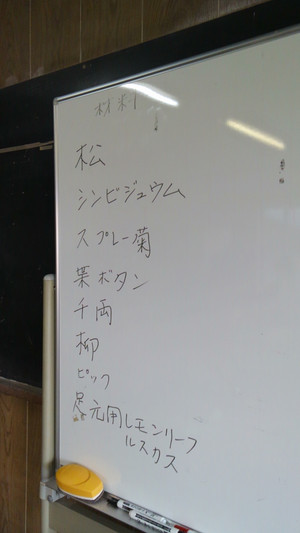 材料
松
シンビジュウム
スプレー菊
葉ボタン
千両
柳
ピック
足元用レモンリーフ
ルスカス